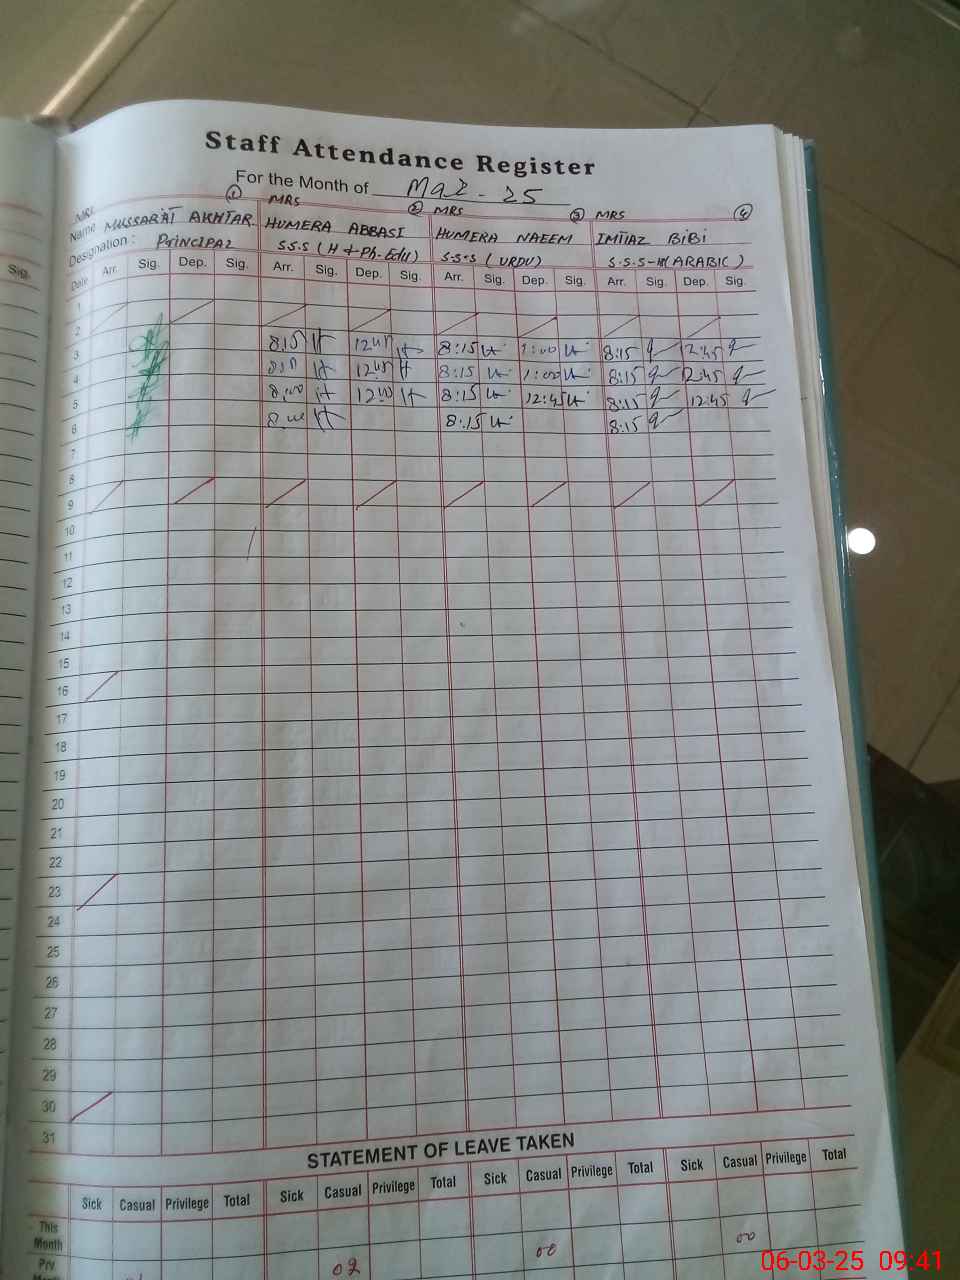 Staff Attendance Register
For the Month of Mar - 25
Sig.
Name MRS MUSSARAT AKHTAR ① MRS HUMERA ABBASI ② MRS HUMERA NAEEM ③ MRS IMTIAZ BIBI ④
Designation : PRINCIPAL S.S.S (H & Ph. Edu) S.S.S (URDU) S.S.S (ARABIC)
Date Arr. Sig. Dep. Sig. Arr. Sig. Dep. Sig. Arr. Sig. Dep. Sig. Arr. Sig. Dep. Sig.
1
2
3 8:15 12:45 8:15 1:00 8:15 12:45
4 12:45 8:15 1:00 8:15 12:45
5 8:00 12:00 8:15 12:45 8:15 12:45
6 8:00 8:15 8:15
7
8
9
10
11
12
13
14
15
16
17
18
19
20
21
22
23
24
25
26
27
28
29
30
31
STATEMENT OF LEAVE TAKEN
Sick Casual Privilege Total Sick Casual Privilege Total Sick Casual Privilege Total Sick Casual Privilege Total
This Month
Prv. Month 02 00 00
06-03-25 09:41